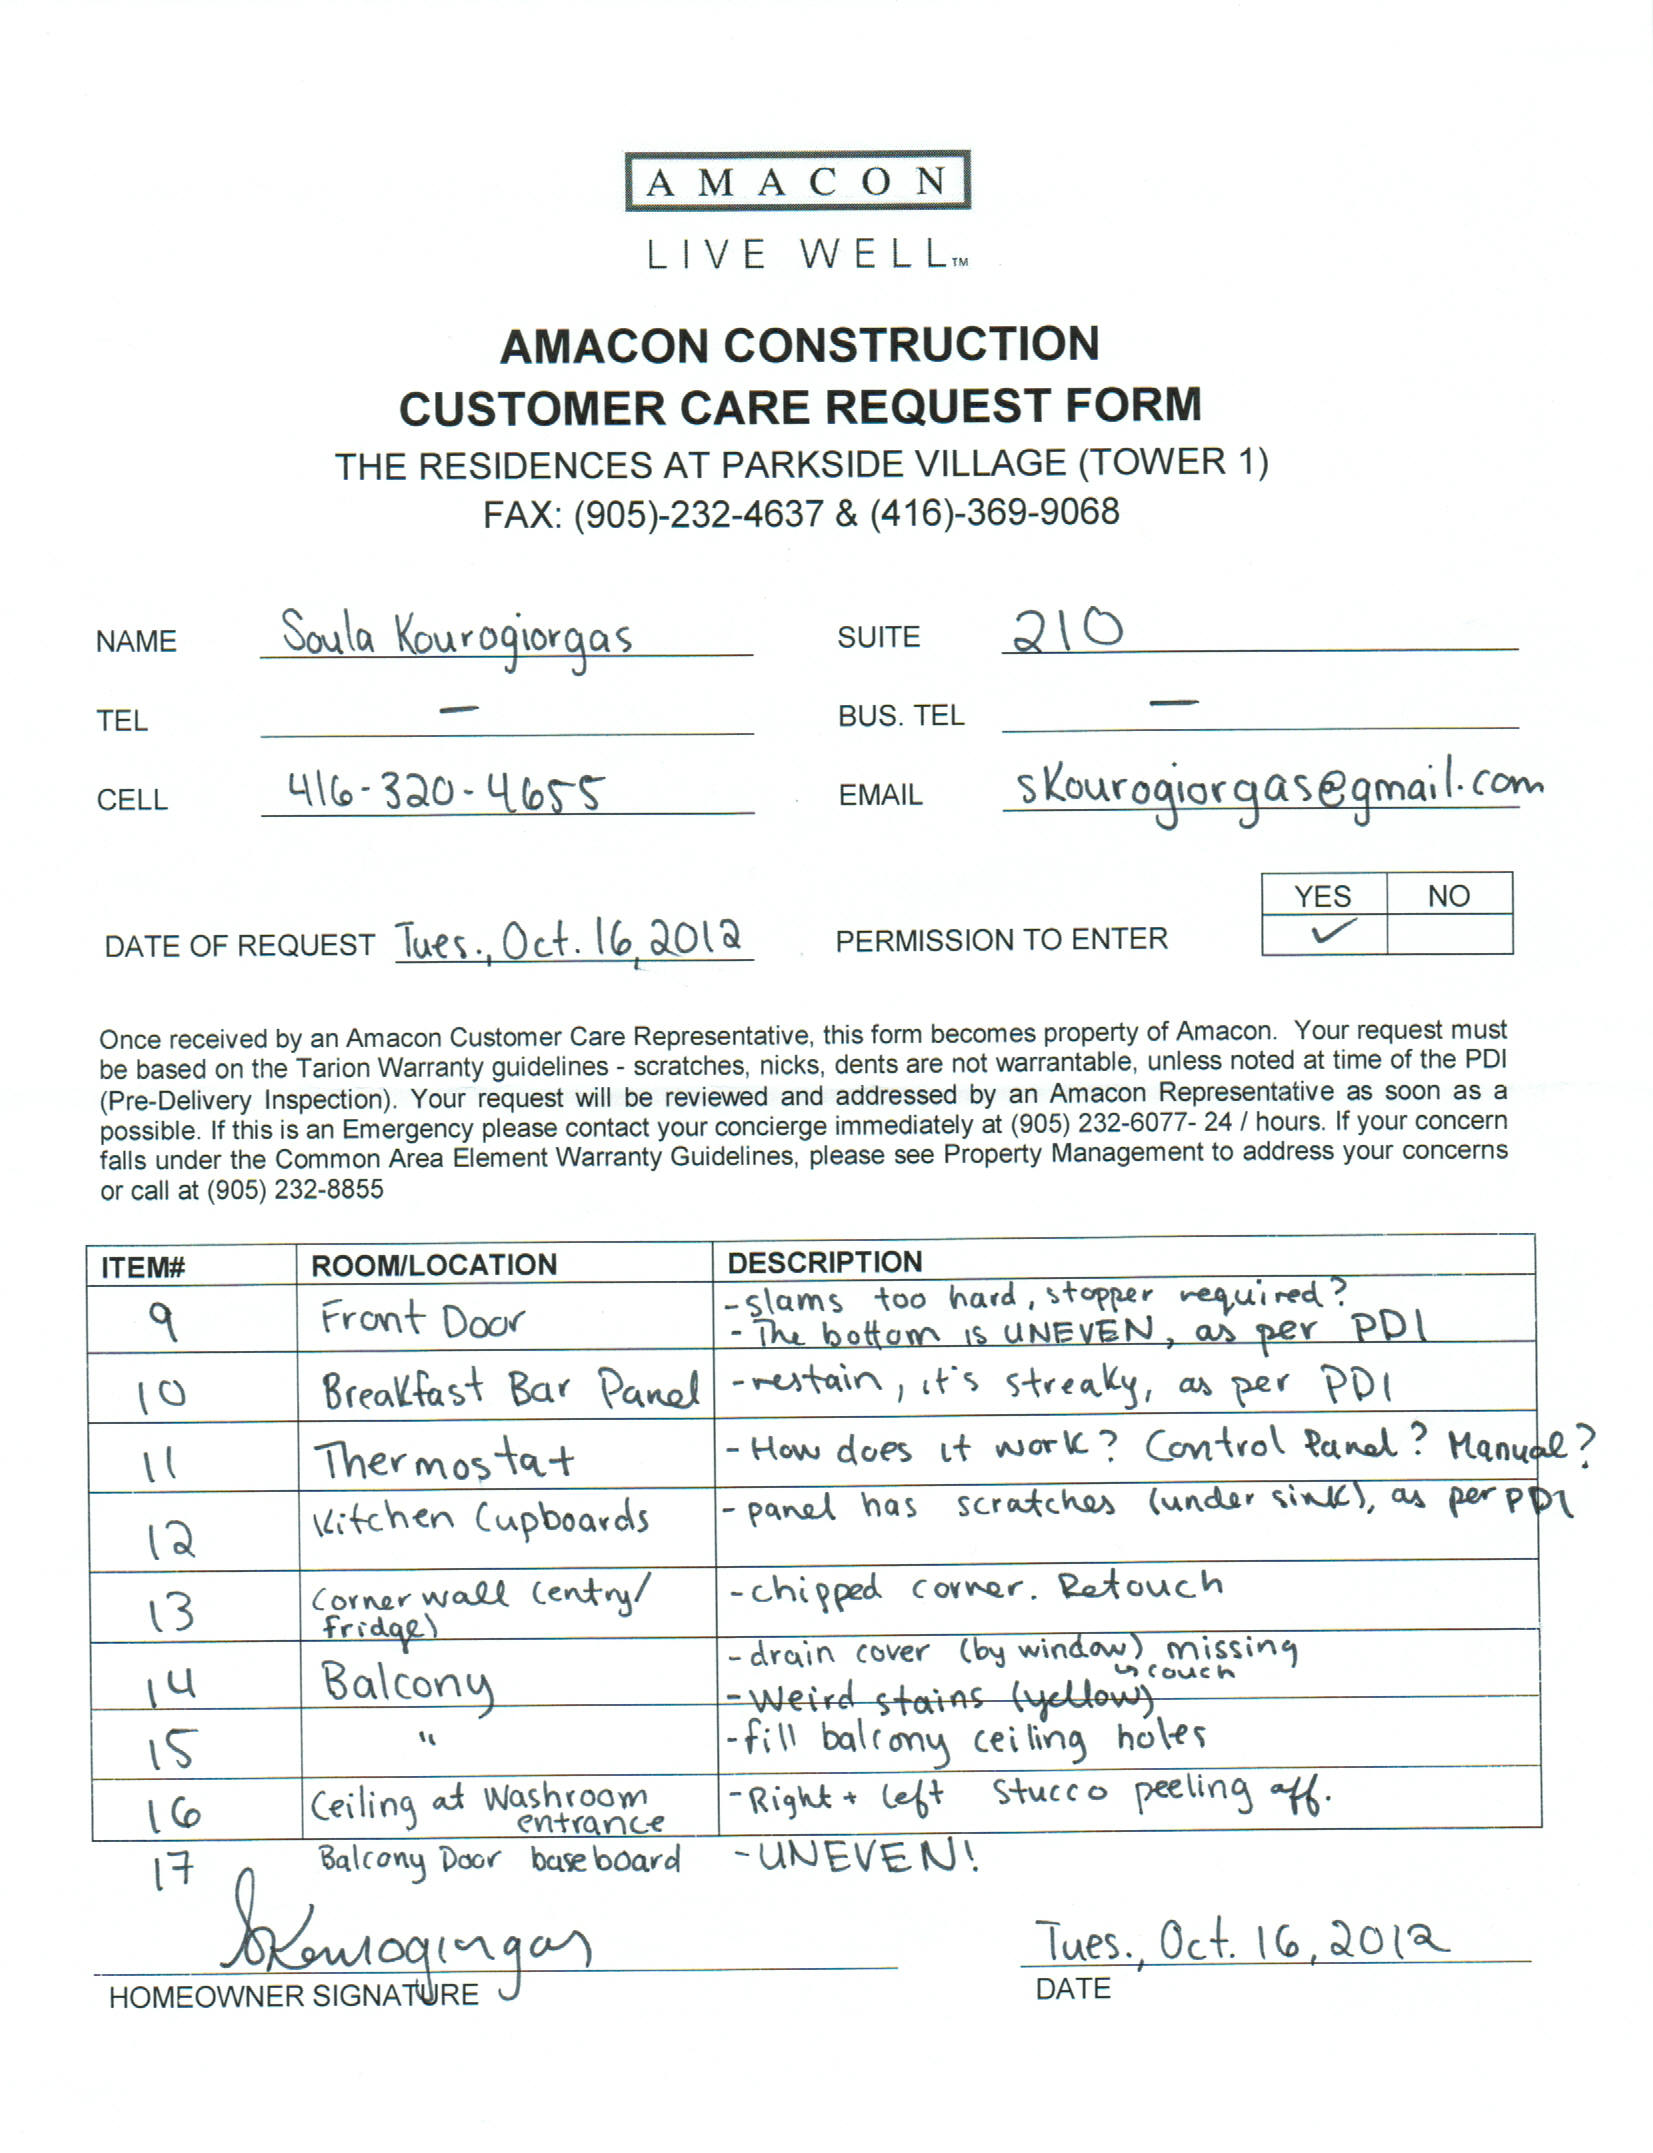 AMACON
LIVE WELL™
AMACON CONSTRUCTION
CUSTOMER CARE REQUEST FORM
THE RESIDENCES AT PARKSIDE VILLAGE (TOWER 1)
FAX: (905)-232-4637 & (416)-369-9068
NAME Soula Kourogiorgas SUITE 210
TEL – BUS. TEL –
CELL 416-320-4655 EMAIL skourogiorgas@gmail.com
YES NO
DATE OF REQUEST Tues., Oct. 16, 2012 PERMISSION TO ENTER ✓
Once received by an Amacon Customer Care Representative, this form becomes property of Amacon. Your request must
be based on the Tarion Warranty guidelines - scratches, nicks, dents are not warrantable, unless noted at time of the PDI
(Pre-Delivery Inspection). Your request will be reviewed and addressed by an Amacon Representative as soon as a
possible. If this is an Emergency please contact your concierge immediately at (905) 232-6077- 24 / hours. If your concern
falls under the Common Area Element Warranty Guidelines, please see Property Management to address your concerns
or call at (905) 232-8855
ITEM# ROOM/LOCATION DESCRIPTION
9 Front Door - slams too hard, stopper required?
- The bottom is UNEVEN, as per PDI
10 Breakfast Bar Panel - restain, it's streaky, as per PDI
11 Thermostat - How does it work? Control Panel? Manual?
12 Kitchen Cupboards - panel has scratches (under sink), as per PDI
13 Corner wall (entry/ - chipped corner. Retouch
fridge)
14 Balcony - drain cover (by window) missing
↳ couch
- Weird stains (yellow)
15 " - fill balcony ceiling holes
16 Ceiling at Washroom - Right + left stucco peeling off.
entrance
17 Balcony Door baseboard - UNEVEN!
SKourogiorgas Tues., Oct. 16, 2012
HOMEOWNER SIGNATURE DATE